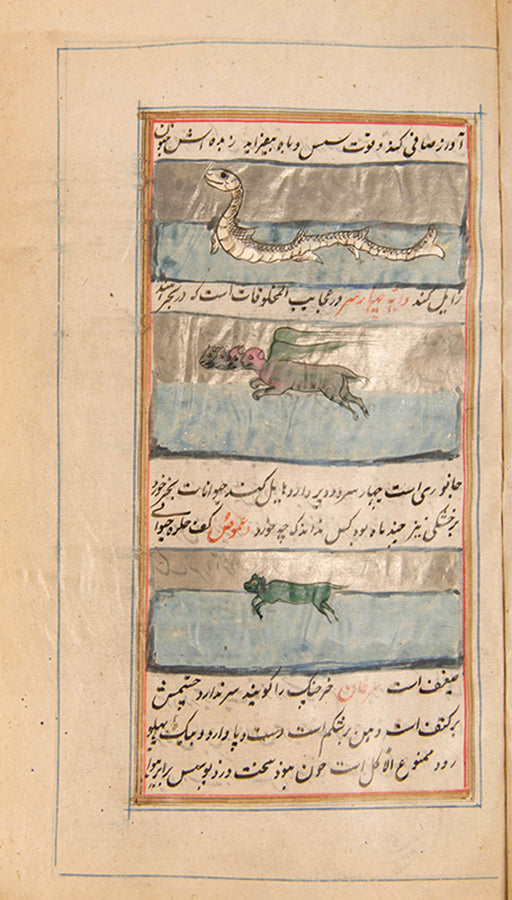 آواز صافی کند و قوت سمس و باه بیفزاید زبده اش جنون
زایل کند دابه چهار سر در عجایب المخلوقات است که در بحر
جانوری است چهار سر و دو پر دارد هایل کند حیوانات بحر خورد
برخشکی نیز چند ماه بود کس نداند که چه خورد دعموص
ضعیف است سرطان خرچنگ را گویند سر ندارد چشمش
بر کتف است و دهن بر شکم است و دارد و بیک پهلو
رود ممنوع الاکل است چون سخت